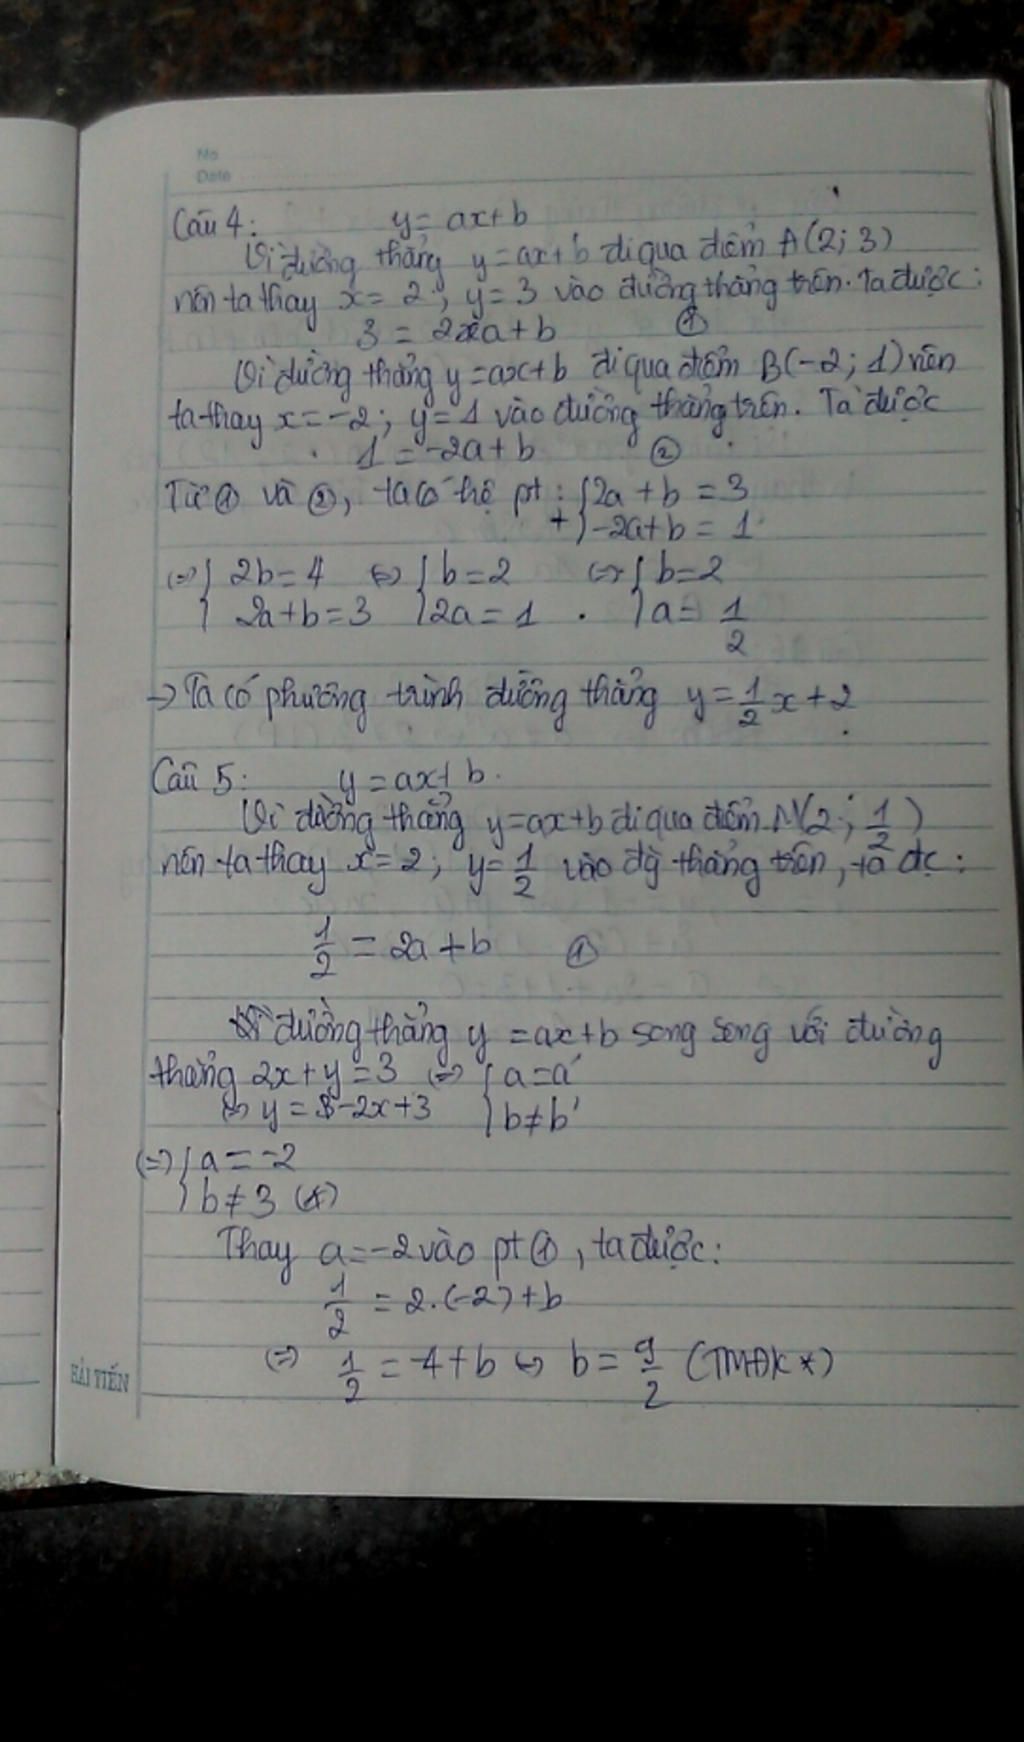 No
Date
Câu 4: y = ax + b
Vì đường thẳng y = ax + b đi qua điểm A(2; 3)
nên ta thay x = 2; y = 3 vào đường thẳng trên. Ta được:
3 = 2xa + b ①
Vì đường thẳng y = ax + b đi qua điểm B(-2; 1) nên
ta thay x = -2; y = 1 vào đường thẳng trên. Ta được
1 = -2a + b ②
Từ ① và ②, ta có hệ pt: { 2a + b = 3
+ { -2a + b = 1
(=) { 2b = 4 <=> { b = 2 <=> { b = 2
{ 2a + b = 3 { 2a = 1 . { a = 1/2
-> Ta có phương trình đường thẳng y = 1/2 x + 2
Câu 5: y = ax + b.
Vì đường thẳng y = ax + b đi qua điểm N(2; 1/2)
nên ta thay x = 2; y = 1/2 vào đg thẳng trên, ta đc:
1/2 = 2a + b ①
Vì đường thẳng y = ax + b song song với đường
thẳng 2x + y = 3 (=) { a = a'
<=> y = -2x + 3 { b ≠ b'
(=) { a = -2
{ b ≠ 3 (*)
Thay a = -2 vào pt ①, ta được:
1/2 = 2.(-2) + b
(=) 1/2 = -4 + b <=> b = 9/2 (TMĐK *)
HẢI TIẾN